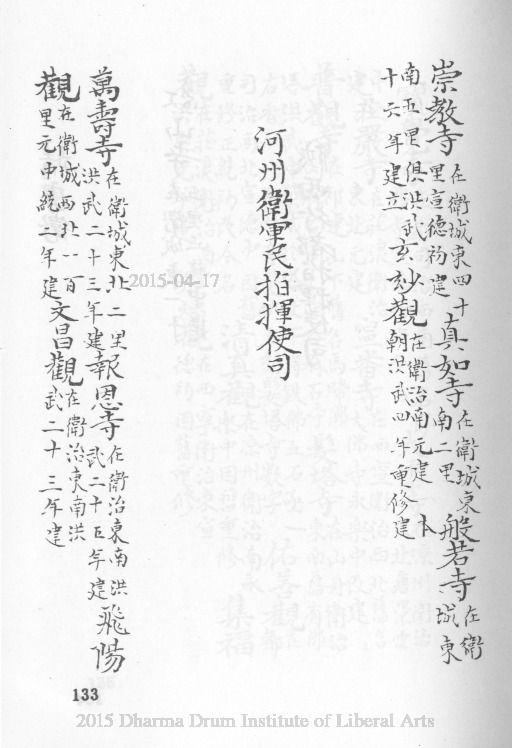 崇教寺在衛城東四十里宣德初建真如寺在衛城東南二里般若寺在衛城東
南五里俱洪武十六年建立玄妙觀在衛治南元建本朝洪武四年重修建
河州衛軍民指揮使司
萬壽寺在衛城東北二里洪武二十三年建報恩寺在衛治東南洪武二十五年建飛陽
觀在衛城西北一百里元中統二年建文昌觀在衛治東南洪武二十三年建
2015-04-17
133
2015 Dharma Drum Institute of Liberal Arts